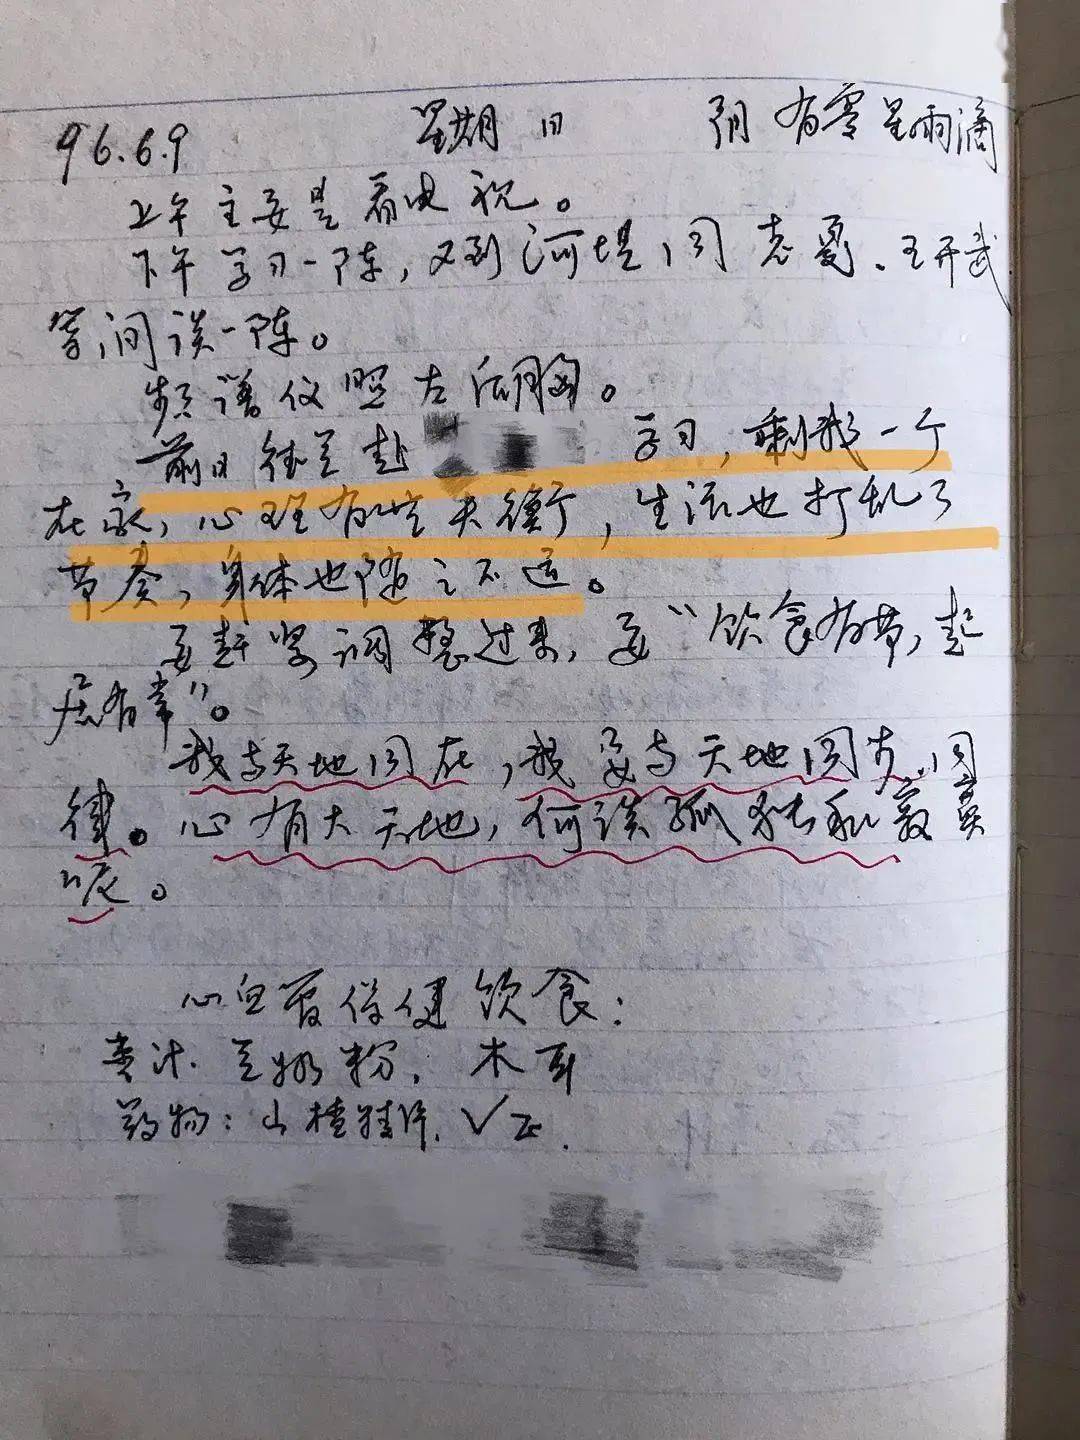 96.6.9 星期日 阴 有零星雨滴
上午主要是看电视。
下午学习一阵，又到河堤同志、王开武
等闲谈一阵。
频谱仪照左后胸。
前日赴学习，剩我一个
在家，心理有些失衡，生活也打乱了
节奏，身体也随之不适。
要赶紧调整过来，要“饮食有节，起
居有常”。
我与天地同在，我要与天地同步、同
律。心有大天地，何谈孤独和寂寞
哎。
心血管保健饮食：
麦汁、豆奶粉、木耳
药物：山楂精片、VE.